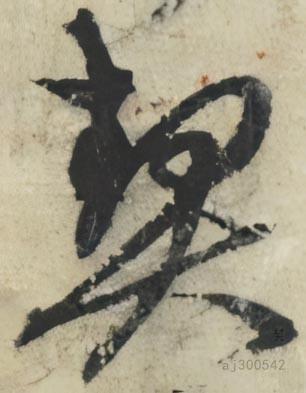 契
aj300542